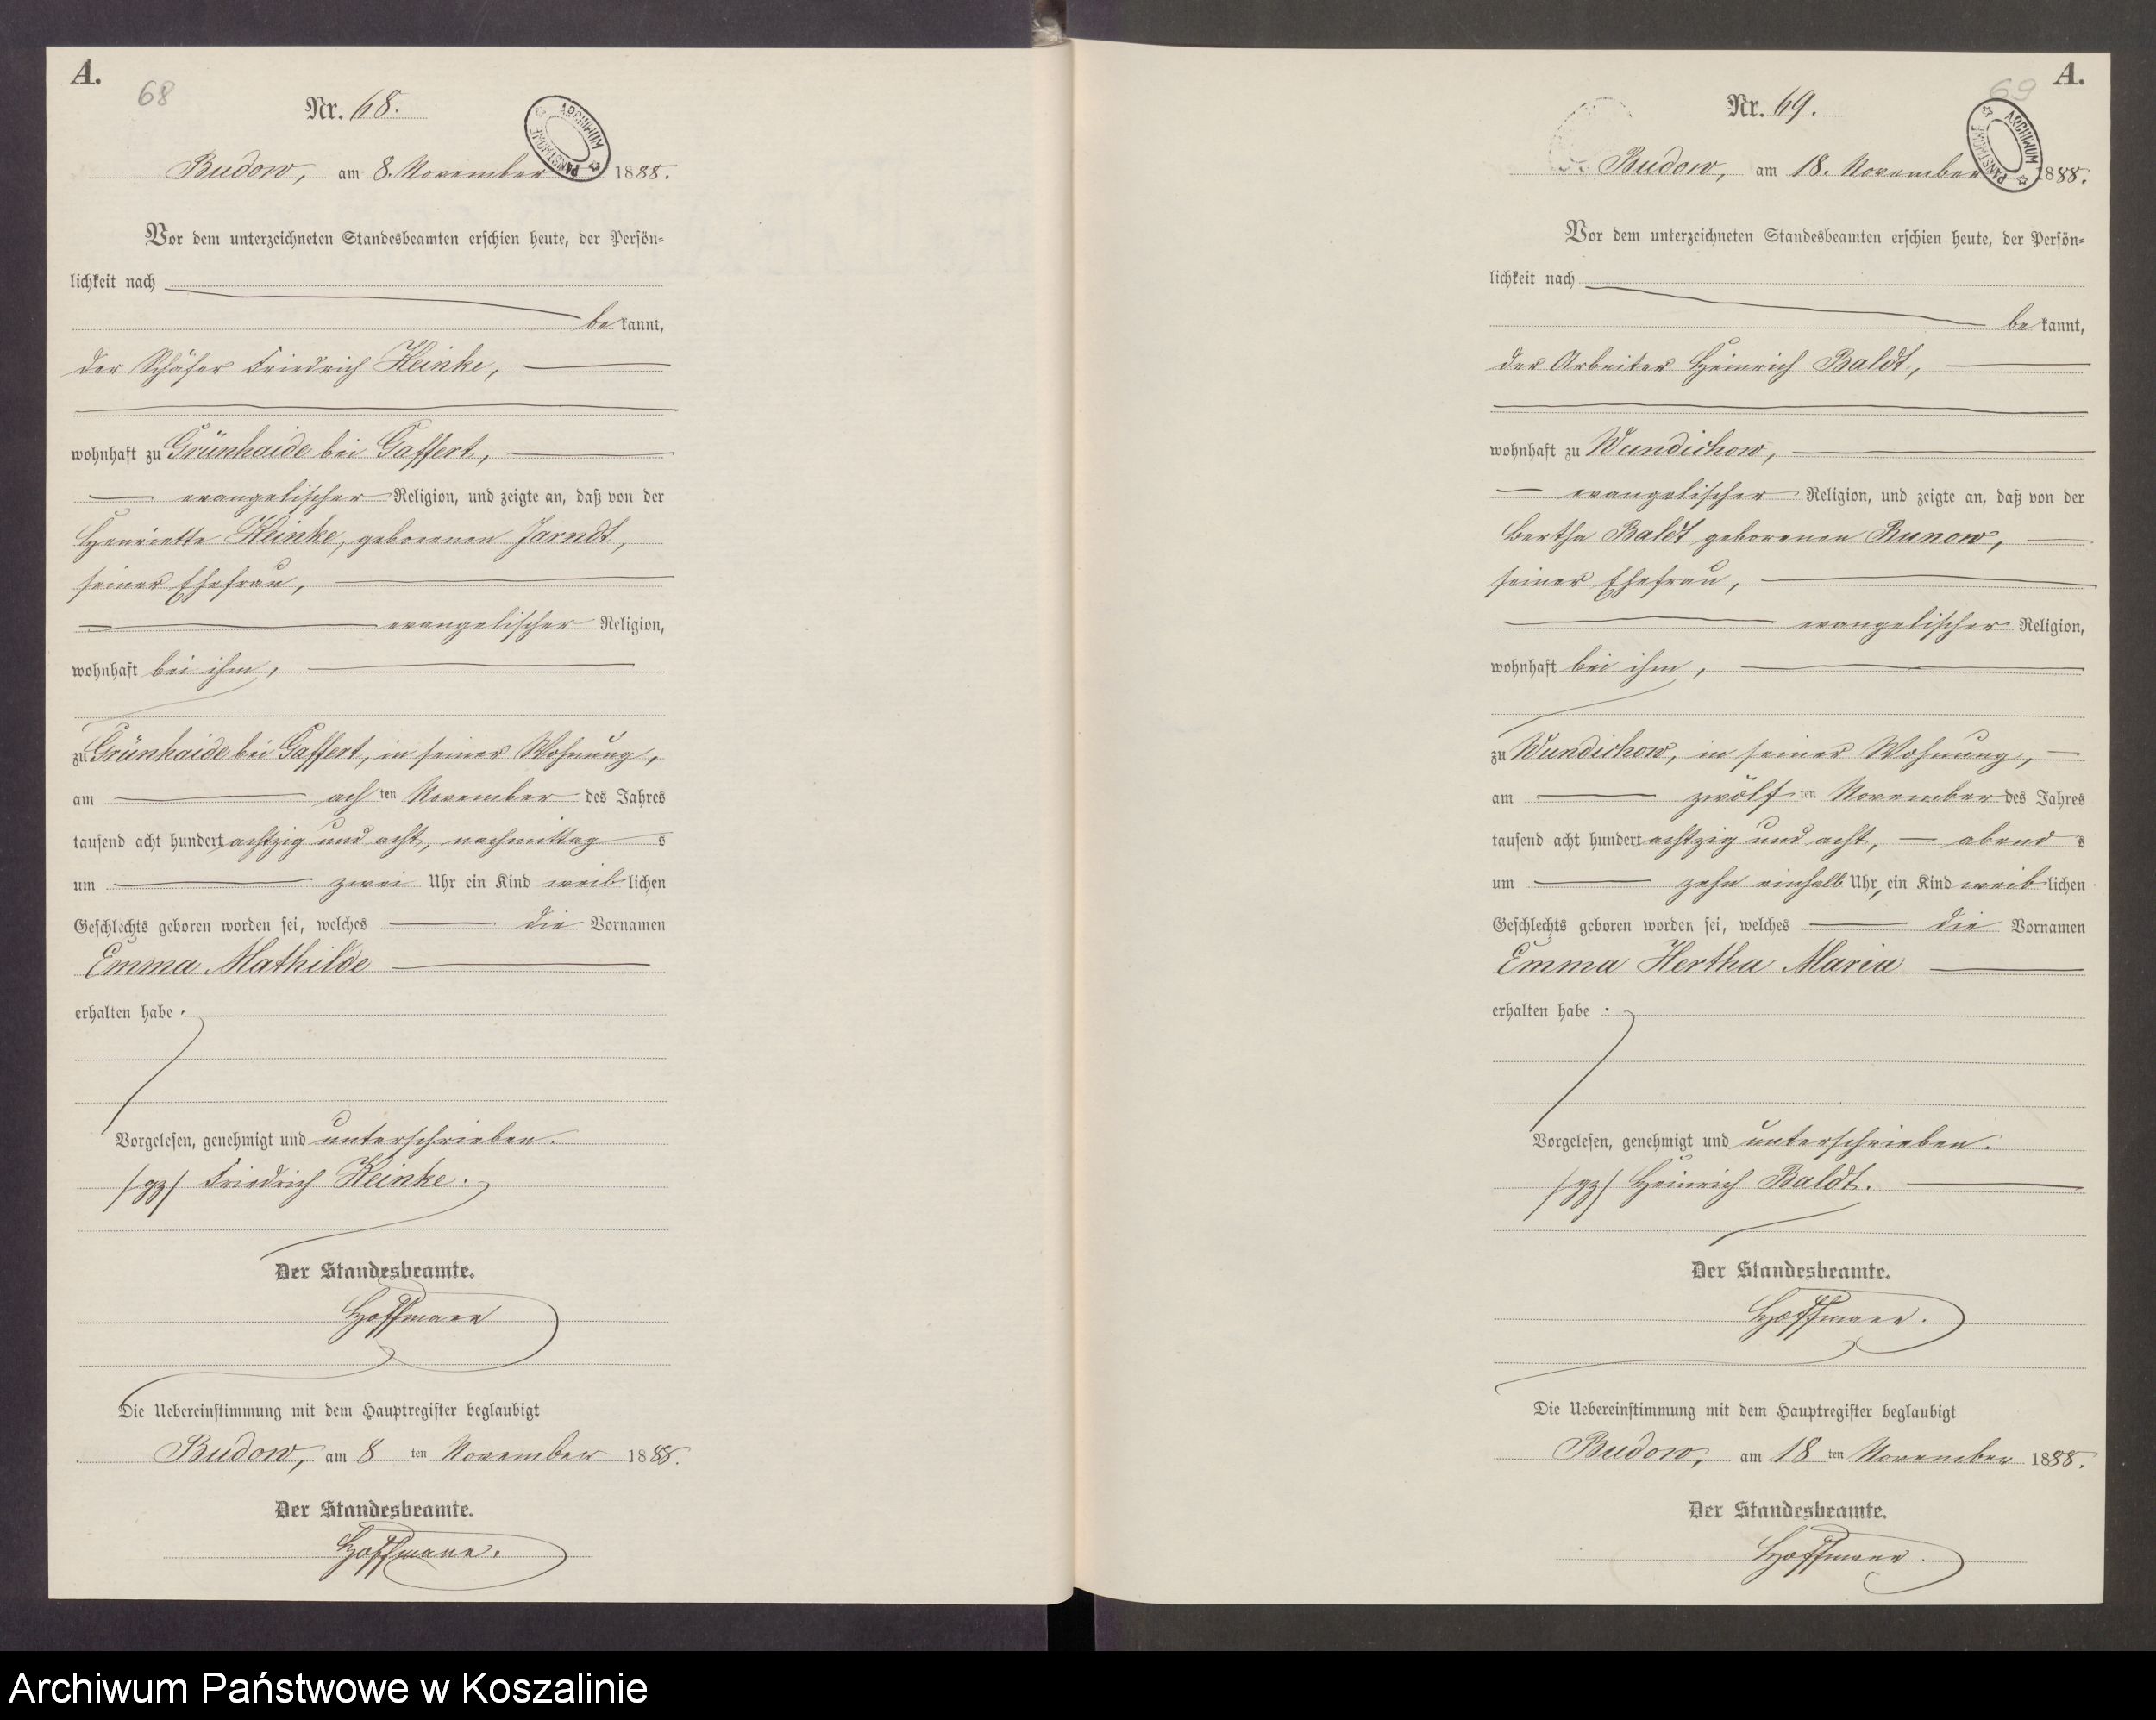 A.
68
Nr. 68.
ARCHIWUM PAŃSTWOWE
Budow, am 8. November 1888.
Vor dem unterzeichneten Standesbeamten erschien heute, der Persön-
lichkeit nach
bekannt,
der Schäfer Friedrich Keinke,
wohnhaft zu Grünhaide bei Gaffert,
evangelischer Religion, und zeigte an, daß von der
Henriette Keinke, geborenen Jarndt,
seiner Ehefrau,
evangelischer Religion,
wohnhaft bei ihm,
zu Grünhaide bei Gaffert, in seiner Wohnung,
am achten November des Jahres
tausend acht hundert achtzig und acht, nachmittags
um zwei Uhr ein Kind weiblichen
Geschlechts geboren worden sei, welches die Vornamen
Emma Mathilde
erhalten habe.
Vorgelesen, genehmigt und unterschrieben.
/gz/ Friedrich Keinke.
Der Standesbeamte.
Hoffmann
Die Uebereinstimmung mit dem Hauptregister beglaubigt
Budow, am 8ten November 1888.
Der Standesbeamte.
Hoffmann.
A.
69
Nr. 69.
ARCHIWUM PAŃSTWOWE
Budow, am 18. November 1888.
Vor dem unterzeichneten Standesbeamten erschien heute, der Persön-
lichkeit nach
bekannt,
der Arbeiter Heinrich Baldt,
wohnhaft zu Wundichow,
evangelischer Religion, und zeigte an, daß von der
Bertha Baldt geborenen Runow,
seiner Ehefrau,
evangelischer Religion,
wohnhaft bei ihm,
zu Wundichow, in seiner Wohnung,
am zwölften November des Jahres
tausend acht hundert achtzig und acht, abends
um zehn einhalb Uhr, ein Kind weiblichen
Geschlechts geboren worden sei, welches die Vornamen
Emma Hertha Maria
erhalten habe.
Vorgelesen, genehmigt und unterschrieben.
/gz/ Heinrich Baldt.
Der Standesbeamte.
Hoffmann.
Die Uebereinstimmung mit dem Hauptregister beglaubigt
Budow, am 18ten November 1888.
Der Standesbeamte.
Hoffmann.
Archiwum Państwowe w Koszalinie